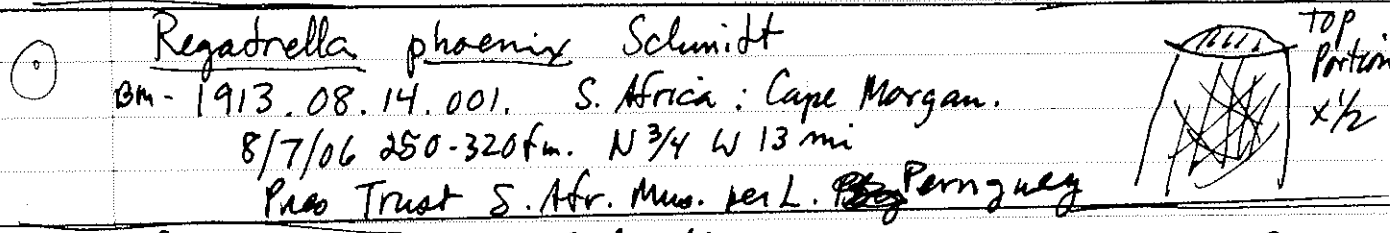 Regadrella phoenix Schmidt
BM - 1913.08.14.001. S. Africa : Cape Morgan.
8/7/06 250-320 fm. N 3/4 W 13 mi
Pres Trust S. Afr. Mus. per L. Pernguey
TOP
Portion
x 1/2